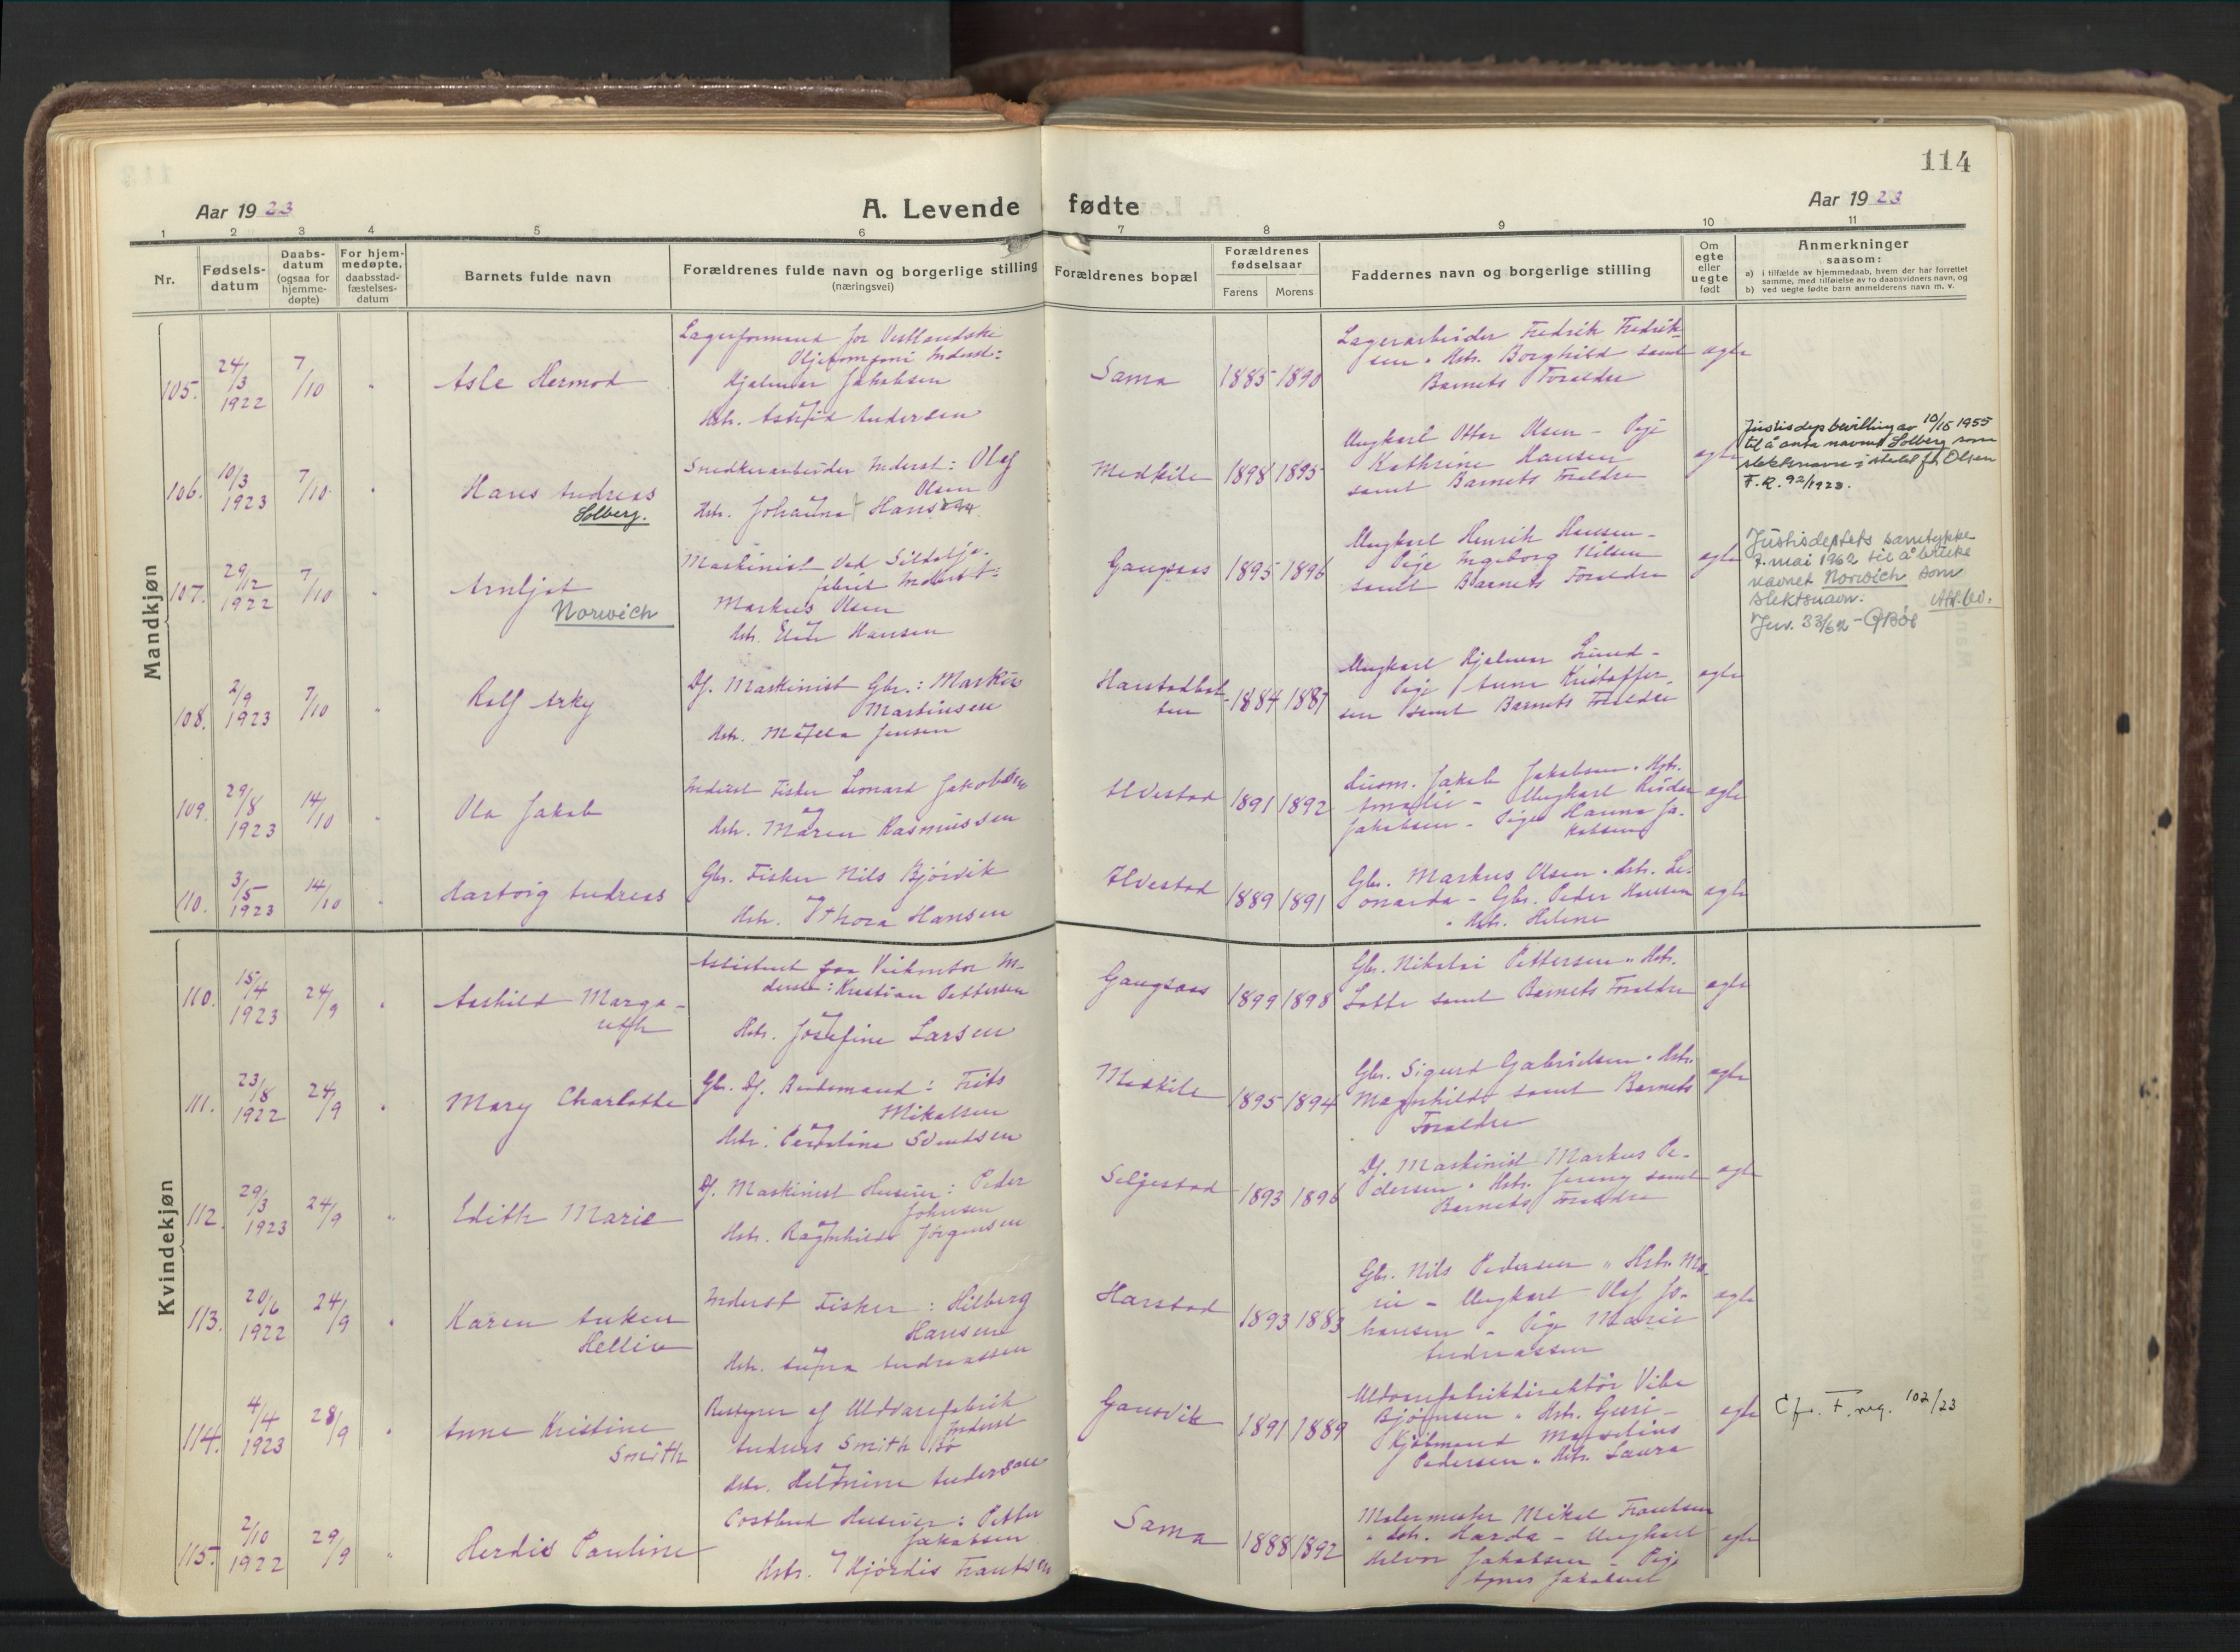 114
Aar 1923
A. Levende fødte
Aar 1923
1 2 3 4 5 6 7 8 9 10 11
Nr.
Fødsels-
datum
Daabs-
datum
(ogsaa for
hjemme-
døpte)
For hjem-
medøpte,
daabsstad-
fæstelses-
datum
Barnets fulde navn
Forældrenes fulde navn og borgerlige stilling
(næringsvei)
Forældrenes bopæl
Forældrenes
fødselsaar
Farens Morens
Faddernes navn og borgerlige stilling
Om
egte
eller
uegte
født
Anmerkninger
saasom:
a) i tilfælde av hjemmedaab, hvem der har forrettet
samme, med tilføielse av to daabsvidners navn, og
b) ved uegte fødte barn anmelderens navn m. v.
Mandkjøn
105. 24/3 1922 7/10 " Asle Hermod
Lagerformand for Vestlandske
Oljekompani Inderst:
Hjalmar Jakobsen
Hstr. Astrid Andersen
Sama 1885 1890
Lagerarbeider Fredrik Fredrik-
sen " Hstr. Borghild samt
Barnets Foraldre
agte
106. 10/3 1923 7/10 " Hans Andreas
Solberg.
Snedkerarbeider Inderst: Olaf
Olsen
Hstr. Johanna Hansen
Medkile 1898 1895
Ungkarl Ottar Olsen - Pige
Kathrine Hansen
samt Barnets Foraldre
agte
Justisdeps bevilling av 10/15 1955
til å anta navnet Solberg som
slektsnavn i stedet for Olsen
F.R. 92/1923.
107. 29/12 1922 7/10 " Arnljot
Norwich
Maskinist ved Sildolje-
fabrik Inderst:
Markus Olsen
Hstr. Hansen
Gangsaas 1895 1896
Ungkarl Henrik Hansen -
Pige Ingeborg Nilsen
samt Barnets Foraldre
agte
Justisdeptets samtykke
7. mai 1962 til å bruke
navnet Norwich som
slektsnavn.
Jnr. 33/62 -
108. 2/9 1923 7/10 " Rolf Arky
Df. Maskinist Gbr.: Markus
Martinsen
Hstr. Jensen
Harstadbot-
ten 1884 1887
Ungkarl Hjalmar Lund -
Pige Anna Kristoffer-
sen samt Barnets Foraldre
agte
109. 29/8 1923 14/10 " Ola Jakob
Inderst Fisker Leonard Jakobsen
Hstr. Maren Rasmussen
Ilvestad 1891 1892
Jakob Jakobsen " Hstr.
Amalie - Ungkarl
Jakobsen - Pige Hanna Ja-
kobsen
agte
110. 3/5 1923 14/10 " Hartvig Andreas
Gbr. Fisker Nils Bjørvik
Hstr. Thora Hansen
Ilvestad 1889 1891
Gbr. Markus Olsen " Hstr. Le-
onarda - Gbr. Peder Hansen
" Hstr. Helene
agte
Kvindekjøn
110. 15/4 1923 24/9 " Aashild Marga-
reth
Assistent paa Veikontor In-
derst: Kristian Pettersen
Hstr. Josefine Larsen
Gangsaas 1899 1898
Gbr. Nikolai Pettersen " Hstr.
Lotte samt Barnets Foraldre
agte
111. 23/8 1922 24/9 " Mary Charlotte
Gbr. Df. : Frits
Mikalsen
Hstr. Svendsen
Medkile 1895 1894
Gbr. Sigurd Gabrielsen " Hstr.
Magnhild samt Barnets
Foraldre
agte
112. 29/3 1923 24/9 " Edith Marie
Df. Maskinist Huseier: Peder
Johnsen
Hstr. Ragnhild Jørgensen
Seljestad 1893 1896
Df. Maskinist Markus Pe-
dersen " Hstr. Jenny samt
Barnets Foraldre
agte
113. 20/6 1922 24/9 " Karen Anken
Hellie
Inderst Fisker: Hilberg
Hansen
Hstr. Andreassen
Harstad 1893 1883
Gbr. Nils Pedersen " Hstr. Ma-
rie - Ungkarl Olaf Jo-
hansen - Pige Marie
Andreassen
agte
114. 4/4 1923 28/9 " Anne Kristine
Smith
Bestyrer af Uldvarefabrik
Inderst
Anders Smith Bö
Hstr. Andersen
Gansvik 1891 1889
Uldvarefabrikdirektør Vibe
Bjørnsen " Hstr. Guri -
Kjøbmand Marselius
Pedersen " Hstr. Laura
agte
Cfr. F. reg. 102/23
115. 2/10 1922 29/9 " Herdis Pauline
Postbud Huseier: Petter
Jakobsen
Hstr. Hjørdis Frantsen
Sama 1888 1892
Malermester Mikal Frantsen
" Hstr. Harda - Ungkarl
Halvor Jakobsen - Pige
Agnes Jakobsen
agte